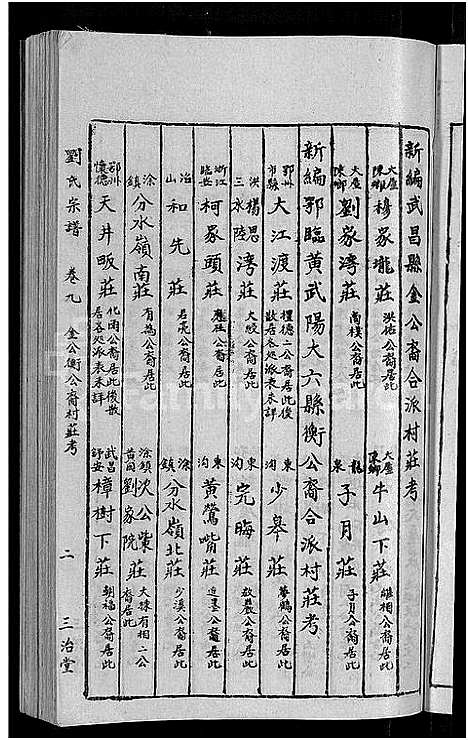 新編武昌縣金公裔合派村莊考
大屋陳鄉 穆家壠莊 洪佑公裔居此 大屋陳鄉 牛山下莊 維相公裔居此
大屋陳鄉 劉家灣莊 尚樸公裔居此 龍泉 子月莊 子月公裔居此
新編鄂臨黃武陽大六縣衡公裔合派村莊考
鄂州市縣 大江渡莊 禮德二公裔居此後散居各處派表未詳 東溝 少皋莊 夢鶴公裔居此
洪楊恩 三水陸灣莊 大皎公裔居此 東溝 完晦莊 敘農公裔居此
浙江臨安 柯家頭莊 應任公裔居此 東溝 黃鶯嘴莊 迫墨公裔居此
冶山 和先莊 君亮公裔居此 涂鎮 分水嶺北莊 少漢公裔居此
涂鎮 分水嶺南莊 有為公裔居此 涂鎮 沈公業劉家院莊 大棟有相二公裔居此
鄂州懷德 天井畈莊 化南公裔居此後散居各處派表未詳 武昌舒安 樟樹下莊 朝福公裔居此
劉氏宗譜 卷九 金公衡公裔村莊考 二 三治堂